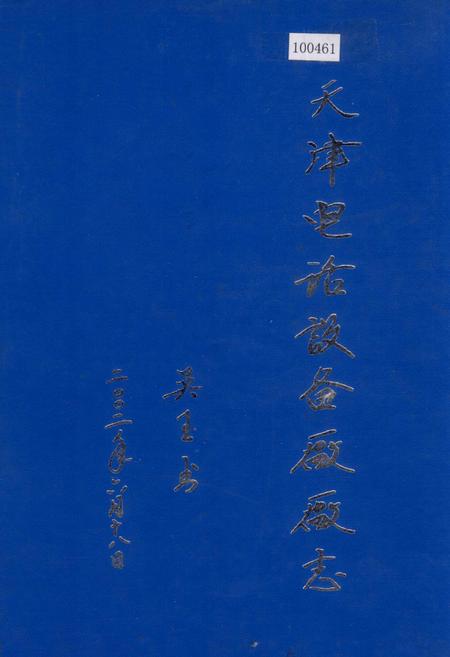 100461
天津电话設备廠廠志
吴玉书
二〇〇二年六月十八日